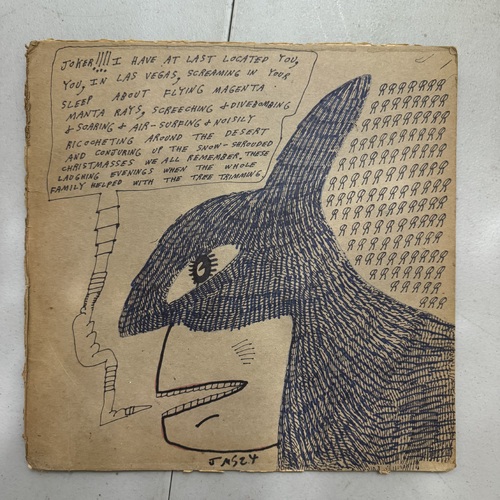 JOKER!!!! I HAVE AT LAST LOCATED YOU,
YOU, IN LAS VEGAS, SCREAMING IN YOUR
SLEEP ABOUT FLYING MAGENTA
MANTA RAYS, SCREECHING & DIVEBOMBING
& SOARING & AIR-SURFING & NOISILY
RICOCHETING AROUND THE DESERT
AND CONJURING UP THE SNOW-SHROUDED
CHRISTMASSES WE ALL REMEMBER, THESE
LAUGHING EVENINGS WHEN THE WHOLE
FAMILY HELPED WITH THE TREE TRIMMING.